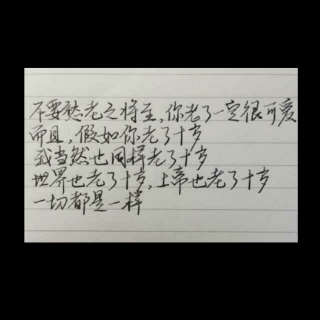 不要愁老之将至,你老了一定很可爱
而且,假如你老了十岁
我当然也同样老了十岁
世界也老了十岁,上帝也老了十岁
一切都是一样